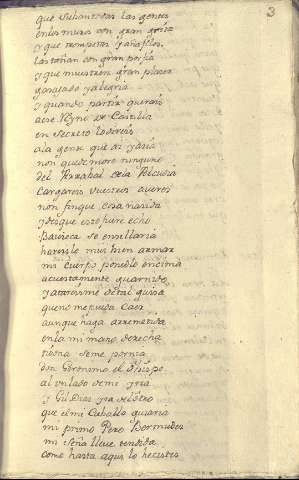 3
que suban todas las gentes
en los muros con gran grita
y que trompetas y añafiles
las tañan con gran porfia
y que muestren gran placer
gasajado y alegria
y quando partir querais
a ese Reyno de Castilla
en secreto lo direis
a la gente que ai yazia
non quede moro ninguno
del Arrabal de la Alcudia
cargareis vuestros averes
non finque cosa nasida
y desque esto fuere echo
Bavieca se ensillaria
hareisle mui bien armar
mi cuerpo ponedlo encima
apuestamente guarnido
y atareisme de tal guisa
que no me pueda caer
aunque haga arremetida
en la mi mano derecha
tizona se me pornia
don Geronimo el Obispo
al un lado de me yria
y Gil Diaz yra al otro
que el mi caballo guiaria
mi primo Pero Bermudez
mi seña lleve tendida
como hasta aqui lo hecistes